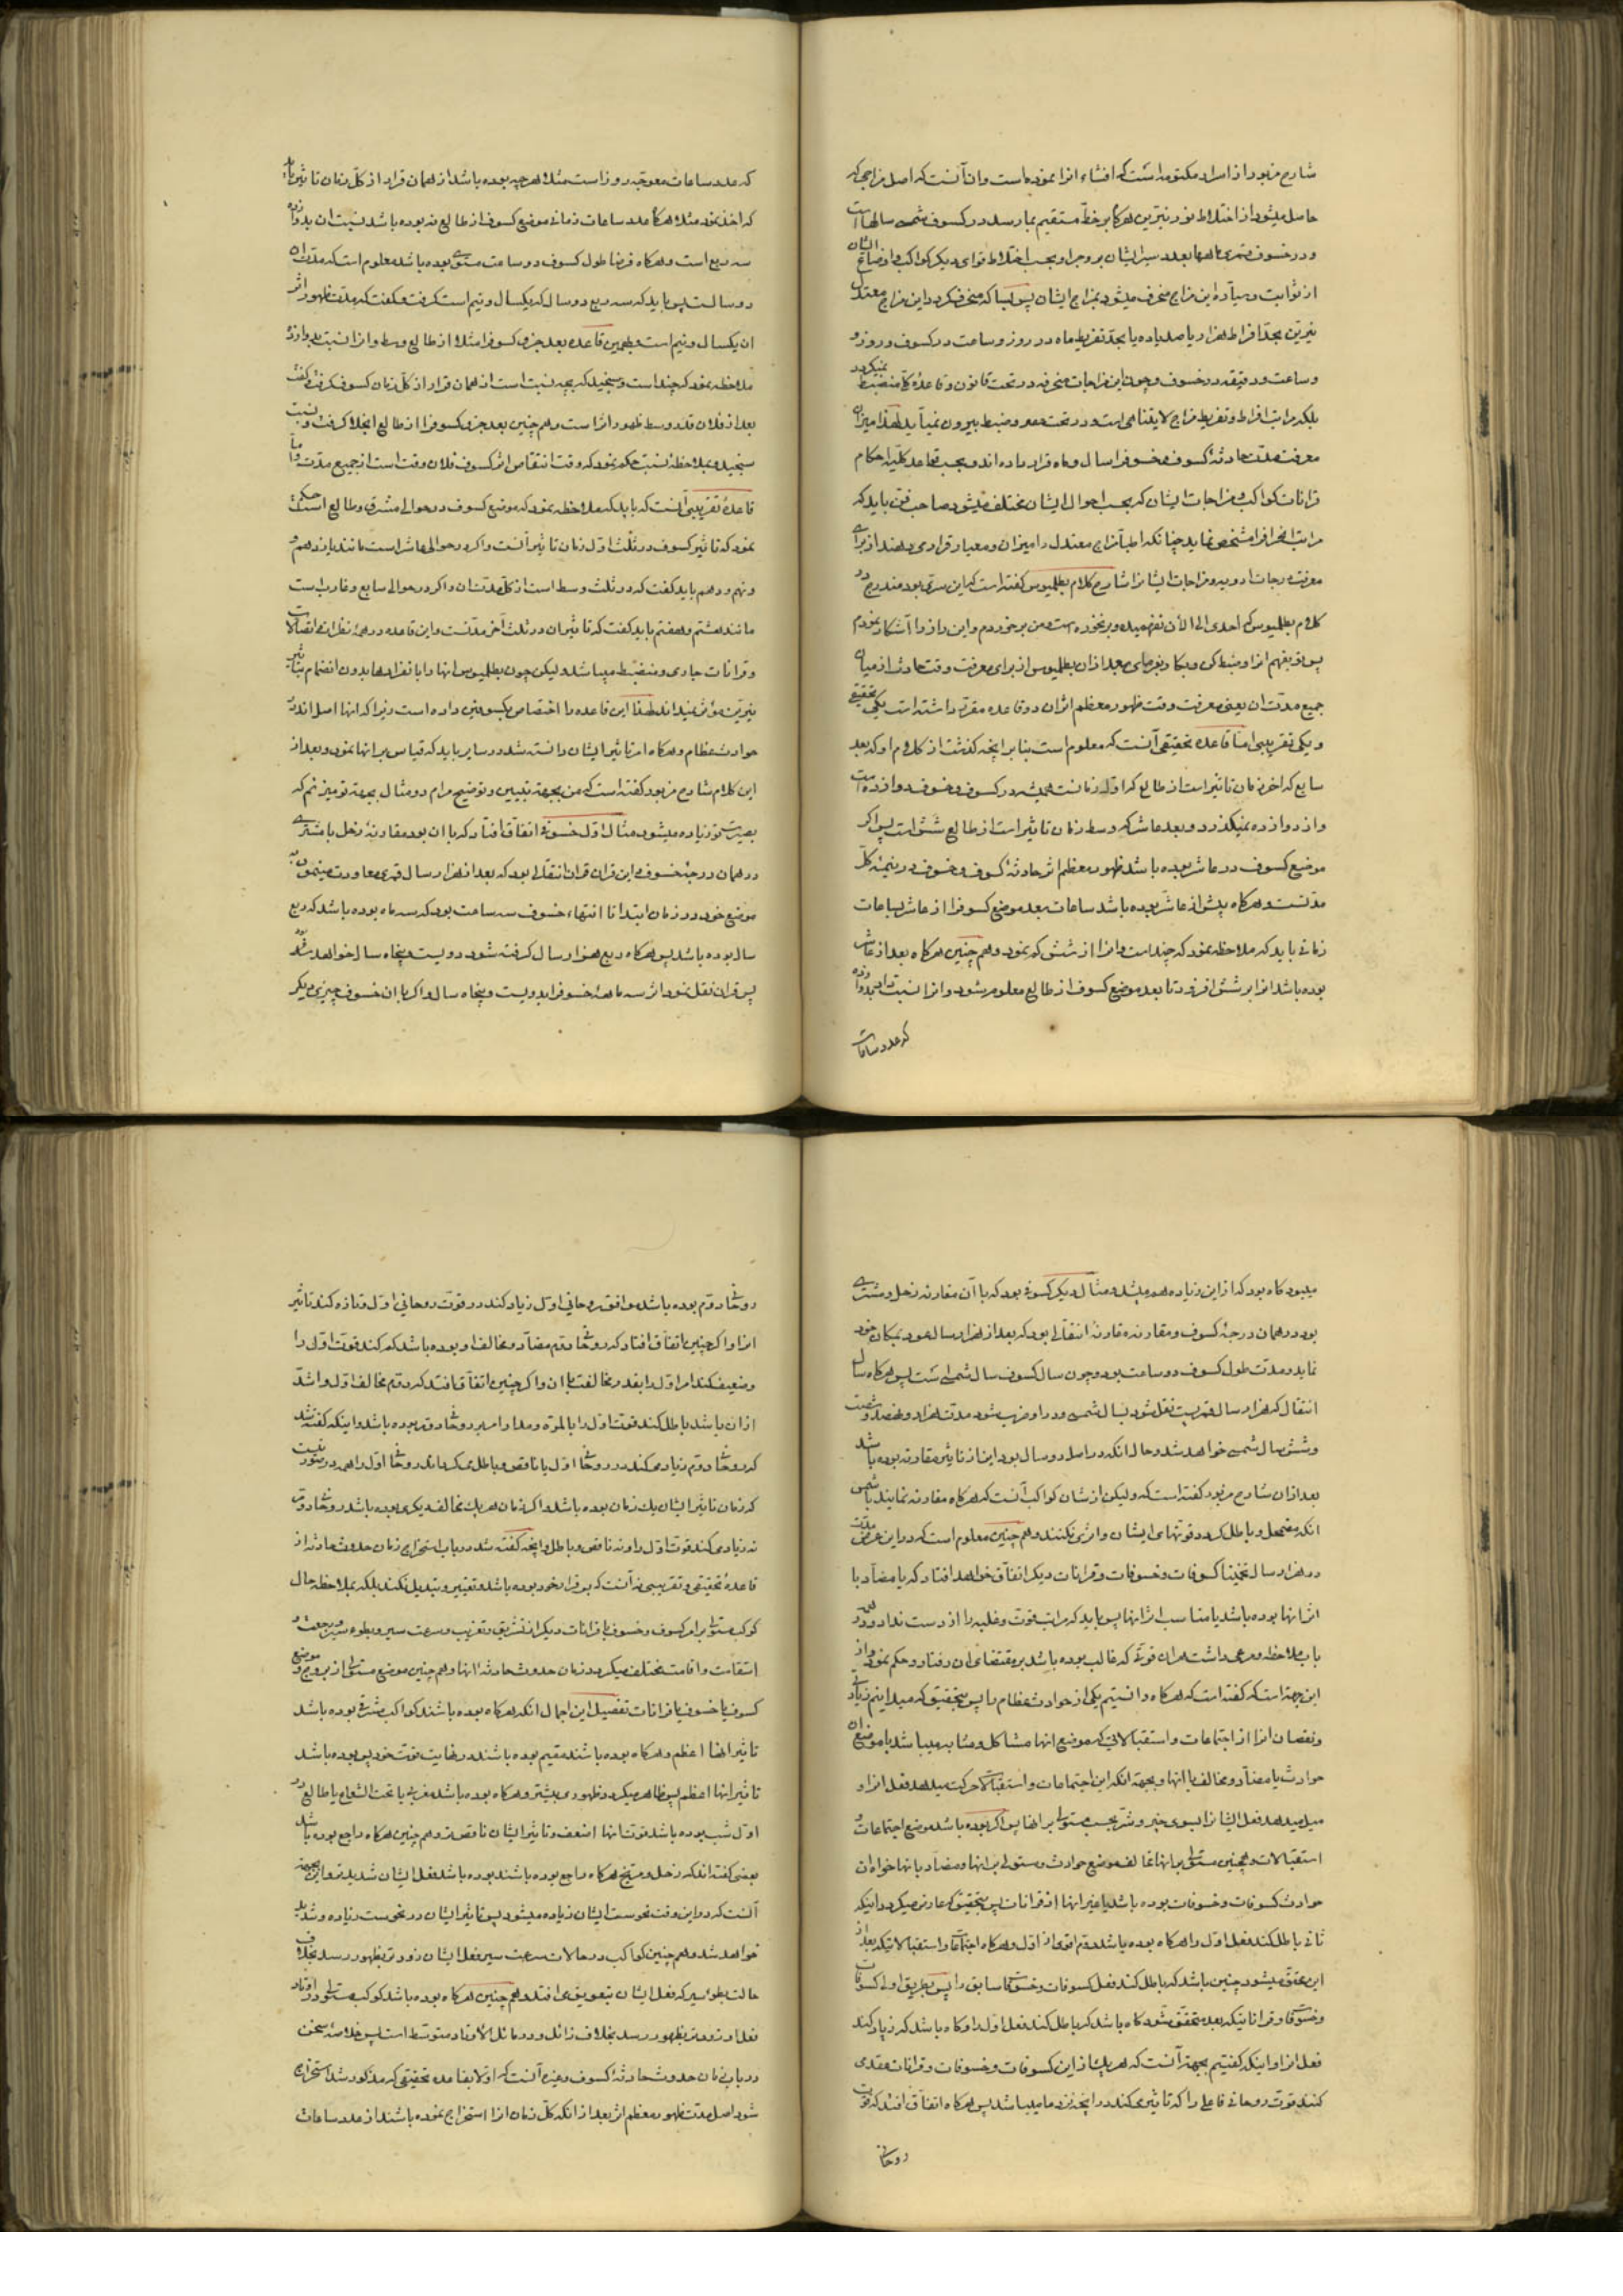 شارح مزبور از اسرار مکتومه است که افشاء انرا نموده است وان آنست که اصل مزاجی که
حاصل میشود از اختلاط نور نیرین هرگاه بر خط مستقیم بما رسد در کسوف شمسی سالها است
ودر خسوف قمری ماهها بعدد سیر ایشان بروج را وبحسب اختلاط قوای دیگر کواکب واوضاع ایشان
از ثوابت وسیاره این مزاج منحرف میشود بمزاج ایشان پس بسا که منحرف گردد این مزاج معتدل
نیرین بحد افراط هزار یا صد یا ده یا بحد تفریط ماه در روز وساعت در کسوف وروز و
وساعت ودقیقه در خسوف وچون این مزاجات منحرفه در تحت قانون وقاعده کلی منضبط نمیگردد
بلکه مراتب افراط وتفریط مزاج لایتناهی است ودر تحت حصر وضبط بیرون نمیآید لهذا میزان
معرفت مدت حادثه کسوف وخسوفرا سال وماه قرار داده اند وبحسب قاعده کلیه احکام
قرانات کواکب ومزاجات ایشان که بحسب احوال ایشان مختلف میشود صاحب فن باید که
مراتب انحرافرا مشخص نماید چنانکه اطبا مزاج معتدل را میزان ومعیار قرار میدهند از برای
معرفت درجات ادویه ومزاجات ایشانرا شارح کلام بطلمیوس گفته است که این سری بود مندرج در
کلام بطلمیوس که احدی الی الآن نفهمیده وبر نخورده است ومن برخوردم واین راز را آشکار نمودم
پس تو بفهم انرا وضبط کن وبکار بر بعد از ان بطلمیوس از برای معرفت وقت حادثه از میان
جمیع مدت ان یعنی معرفت وقت ظهور معظم اثر ان دو قاعده مقرر داشته است یکی تحقیقی
ویکی تقریبی اما قاعده تحقیقی آنست که معلوم است بنا بر انچه گذشت از کلام او که بعد
سابع که اخر زمان تاثیر است از طالع که اول زمانست همیشه در کسوف وخسوف دوازده است
واز دوازده نمیگذرد وبعد عاشر که وسط زمان تاثیر است از طالع شش است پس اگر
موضع کسوف در عاشر بوده باشد ظهور معظم اثر حادثه کسوف وخسوف در نیمه کل
مدتست وهرگاه پیش از عاشر بوده باشد ساعات بعد موضع کسوفرا از عاشر بساعات
زمانی باید که ملاحظه نمود که چند است وانرا از شش کم نمود وهم چنین هرگاه بعد از عاشر
بوده باشد انرا بر شش افزود تا بعد موضع کسوف از طالع معلوم شود وانرا نسبت داد بدوازده
که عدد ساعات
که عدد ساعات معوجه روز است مثلا هرچه بوده باشد از همان قرار از کل زمان تاثیر باید
که اخذ نمود مثلا هرگاه عدد ساعات زمانی موضع کسوف از طالع نه بوده باشد نسبت ان بدوازده
سه ربع است وهرگاه فرضا طول کسوف دو ساعت مستوی بوده باشد معلوم است که مدت ان
دو سالست پس باید که سه ربع دو سال که یکسال ونیم است گرفت وگفت که مدت ظهور اثر
ان یکسال ونیم است وبهمین قاعده بعد جزو کسوفرا مثلا از طالع وسط وانرا نسبت بدوازده
ملاحظه نمود که چند است وسنجید که بچه نسبت است از همان قرار از کل زمان کسوف گرفت وگفت
بعد از فلان قدر وسط ظهور اثر است وهم چنین بعد جزو کسوفرا از طالع انجلا گرفت ونسبت
سنجید وبملاحظه نسبت حکم نمود که وقت انتقاص اثر کسوف فلان وقت است از جمیع مدت واما
قاعده تقریبی آنست که باید که ملاحظه نمود که موضع کسوف در حوالی مشرق وطالع است حکم
نمود که تاثیر کسوف در ثلث اول زمان تاثیر آنست واگر در حوالی عاشر است مانند یازدهم و
ونهم ودهم باید گفت که در ثلث وسط است از کل مدت ان واگر در حوالی سابع وغارب است
مانند هشتم وهفتم باید گفت که تاثیر ان در ثلث آخر مدتست واین قاعده در همه نظرات اتصالات
وقرانات جاری ومنضبط میباشد ولیکن چون بطلمیوس انها را بانفرادها بدون انضمام بتاثیر
نیرین مؤثر نمیداند لهذا این قاعده را اختصاص بکسوفین داده است زیرا که انها اصل اند در
حوادث عظام وهرگاه امر تاثیر ایشان دانسته شد در سایر باید که قیاس بر انها نمود وبعد از
این کلام شارح مزبور گفته است که من بجهه تبیین وتوضیح مرام دو مثال بجهه تو میزنم که
بصیرت تو زیاده میشود مثال اول خسوفی اتفاق افتاد که با ان بود مقارنه زحل با مشتری
در همان درجه خسوف واین قران قران انتقالی بود که بعد از هزار سال قمری معاودت مینمود به
موضع خود ودر زمان ابتدا تا انتهاء خسوف سه ساعت بود که سه ماه بوده باشد که ربع
سال بوده باشد پس هرگاه ربع هزار سال گرفته شود دویست وپنجاه سال خواهد شد
پس قران نقل نمود اثر سه ماهه خسوفرا بدویست وپنجاه سال واگر با ان خسوف چیزی دیگر
میبود گاه بود که از این زیاده هم میشد ومثال دیگر کسوفی بود که با آن مقارنه زحل ومشتری
بود در همان درجه کسوف ومقارنه مقارنه انتقالی بود که بعد از هزار سال عود بمکان خود
نماید ومدت طول کسوف دو ساعت بود وچون سال کسوف سال شمسی است پس هرگاه سال
انتقال که هزار سال قمریست نقل شود بسال شمسی ودر او ضرب شود مدت هزار ونهصد وشصت
وشش سال شمسی خواهد شد وحال انکه در اصل دو سال بود این از تاثیر مقارنه بوده باشد
بعد از ان شارح مزبور گفته است که ولیکن از شان کواکب آنست که هرگاه مقارنه نمایند با شمس
انکه مضمحل وباطل گردد قوتهای ایشان واثری نکنند وهم چنین معلوم است که در این عرض مدت
در هزار سال تخمینا کسوفات وخسوفات وقرانات دیگر اتفاق خواهد افتاد که یا مضاد با
اثر انها بوده باشد یا مناسب اثر انها پس باید که مراتب قوت وغلبه را از دست نداد ودر هر
باب ملاحظه ومرعی داشت هر ان قوتی که غالب بوده باشد بر مقتضای ان رفتار وحکم نمود واز
این جهة است که گفته است که هرگاه دانستیم یکی از حوادث عظام را پس بتحقیق که میدانیم زیادتی
ونقصان انرا از اجتماعات واستقبالاتی که موضع انها مشاکل ومشابه میباشد با موضع ان
حوادث یا مضاد ومخالف با انها وبجهة انکه این اجتماعات واستقبالات حرکت میدهد فعل انرا و
میل میدهد فعل ایشانرا بسوی خیر وشر بحسب مستولی بر انها پس اگر بوده باشد موضع اجتماعات و
استقبالات وهمچنین مستولی بر انها مخالف موضع حوادث ومستولی بر انها ومضاد با انها خواه ان
حوادث کسوفات وخسوفات بوده باشد یا غیر انها از قرانات پس بتحقیق که عارض میگردد اینکه
ثانی باطل کند فعل اول را هرگاه بوده باشد دوم اقوی از اول وهرگاه اجتماعات واستقبالاتیکه بعد از
این محقق میشود چنین باشد که باطل کند فعل کسوفات وخسوفات سابق را پس بطریق اولی کسوفات
وخسوفات وقراناتیکه بعد متحقق شود گاه باشد که باطل کند فعل اول را وگاه باشد که زیاد کند
فعل انرا واینکه گفتیم بجهة آنست که هر یک از این کسوفات وخسوفات وقرانات عقدی
کند قوت روحانی فاعلی را که تاثیر میکند در انچه نزد ما میباشد پس هرگاه اتفاق افتد که قوت
روحانی
روحانی دوم بوده باشد موافق روحانی اول زیاد کند در قوت روحانی اول وتازه کند تاثیر
انرا واگر چنین اتفاق افتاد که روحانی دوم مضاد ومخالف او بوده باشد کم کند قوت اول را
وضعیف کند امر اول را بقدر مخالفت با ان واگر چنین اتفاق افتد که دوم مخالف اول واشد
از ان باشد باطل کند قوت اول را بالمره ومدار امر بر روحانی دوم بوده باشد واینکه گفته شد
که روحانی دوم زیاد میکند در روحانی اول یا ناقص وباطل میگرداند روحانی اول را همه در صورتیست
که زمان تاثیر ایشان یک زمان بوده باشد واگر زمان هر یک مخالف دیگری بوده باشد روحانی دوم
نه زیاد میکند قوت اول را ونه ناقص وباطل وانچه گفته شد در باب استخراج زمان حدوث حادثه از
قاعده تحقیقی وتقریبی نه آنست که بر قرار خود بوده باشد وتغییر وتبدیل نکند بلکه بملاحظه حال
کوکب مستولی بر امر کسوف وخسوف یا قرانات دیگر از تشریق وتغریب وسرعت سیر وبطوء سیر ورجعت و
استقامت واقامت مختلف میگردد زمان حدوث حادثه انها وهم چنین موضع مستولی از بروج وموضع
کسوف یا خسوف یا قرانات تفصیل این اجمال انکه هرگاه بوده باشند کواکب مشرقی بوده باشد
تاثیر انها اعظم وهرگاه بوده باشند مقیم بوده باشند در نهایت قوت خود پس بوده باشد
تاثیر انها اعظم پس ظاهر میگردد ظهوری بیشتر وهرگاه بوده باشد مغربی یا تحت الشعاع یا طالع در
اول شب بوده باشد قوت انها اضعف وتاثیر ایشان ناقص تر وهم چنین هرگاه راجع بوده باشد
بعضی گفته اند که زحل ومریخ هرگاه راجع بوده باشند بوده باشد فعل ایشان شدید تر واین بجهة
آنست که در این وقت نحوست ایشان زیاده میشود پس تاثیر ایشان در نحوست زیاده وشدید
خواهد شد وهم چنین کواکب در حالات سرعت سیر فعل ایشان زود تر بظهور رسد بخلاف
حالت بطوء سیر که فعل ایشان بتعویق می افتد وهم چنین هرگاه بوده باشد کوکب مستولی در اوتاد
فعل او زود تر بظهور رسد بخلاف زائل ودر مائل الاوتاد متوسط است پس خلاصه سخن
در باب زمان حدوث حادثه کسوف وغیره آنست که اولا بقاعده تحقیقی که مذکور شد استخراج
شود اصل مدت ظهور معظم اثر بعد از انکه کل زمان انرا استخراج نموده باشند از عدد ساعات